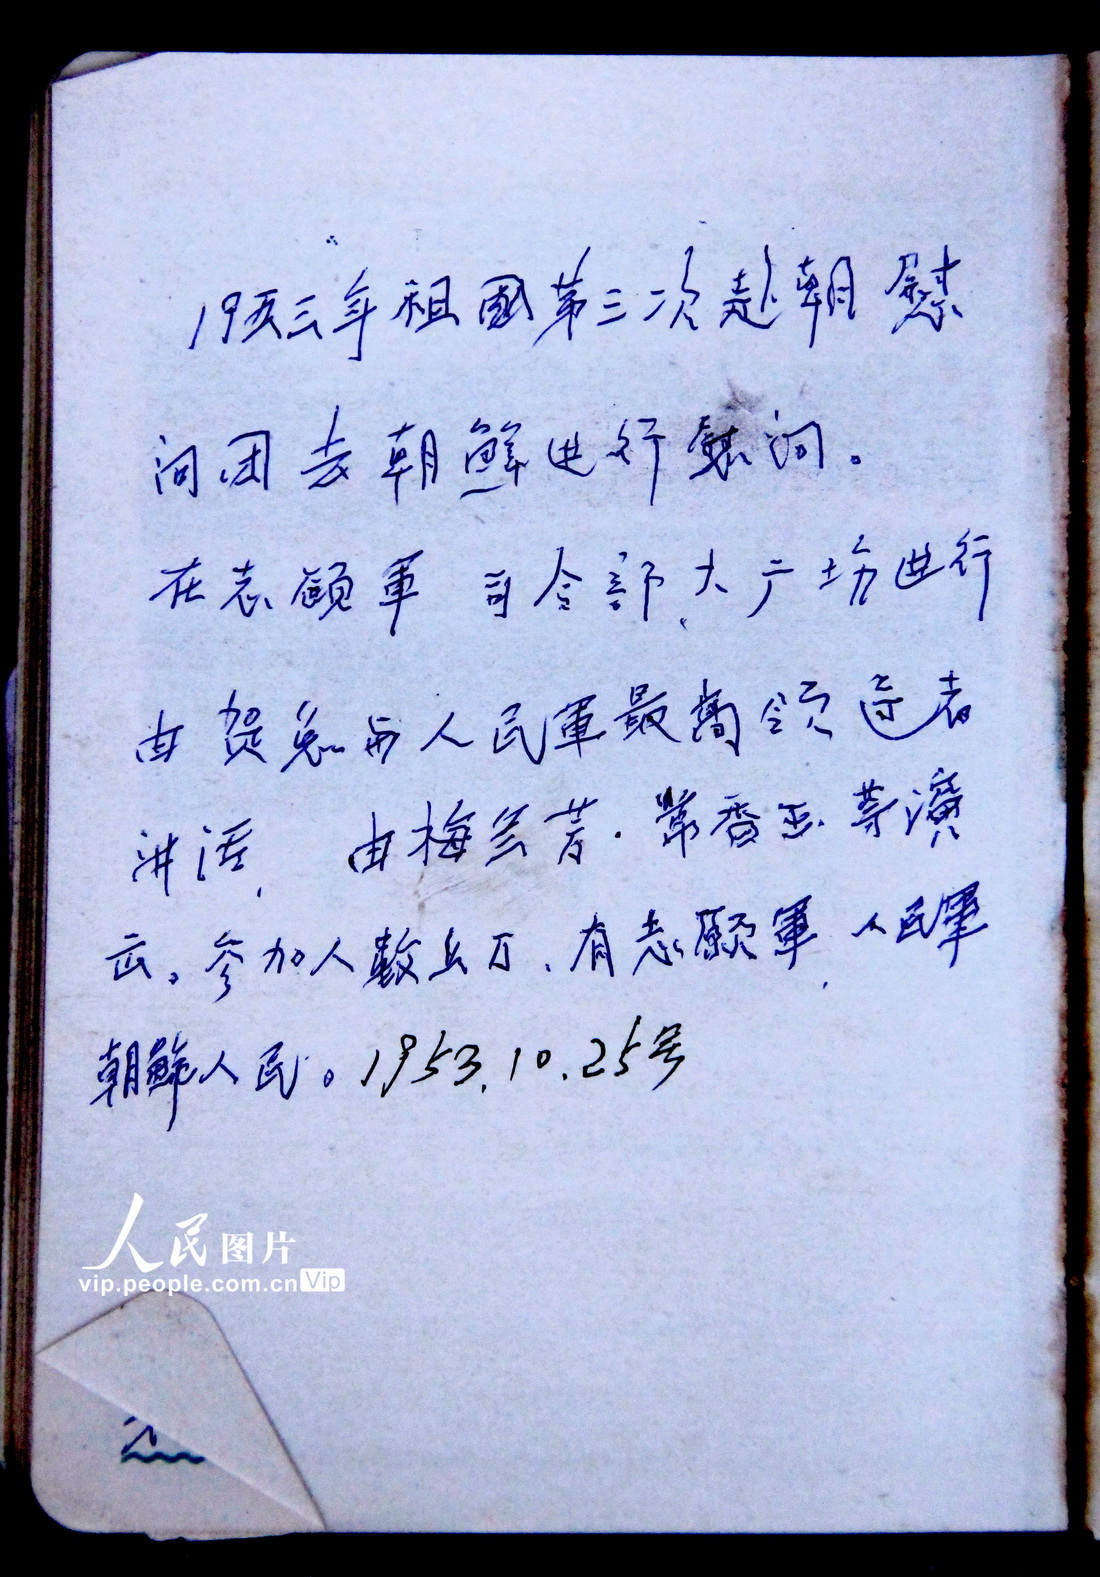 19五三年祖國第三次赴朝慰
问团去朝鮮进行慰问。
在志願軍司令部大广场进行
由贺龙与人民軍最高领导者
讲话, 由梅兰芳.常香玉等演
出。参加人数五万、有志願軍、人民軍
朝鮮人民。1953.10.25号
人民图片
vip.people.com.cn Vip